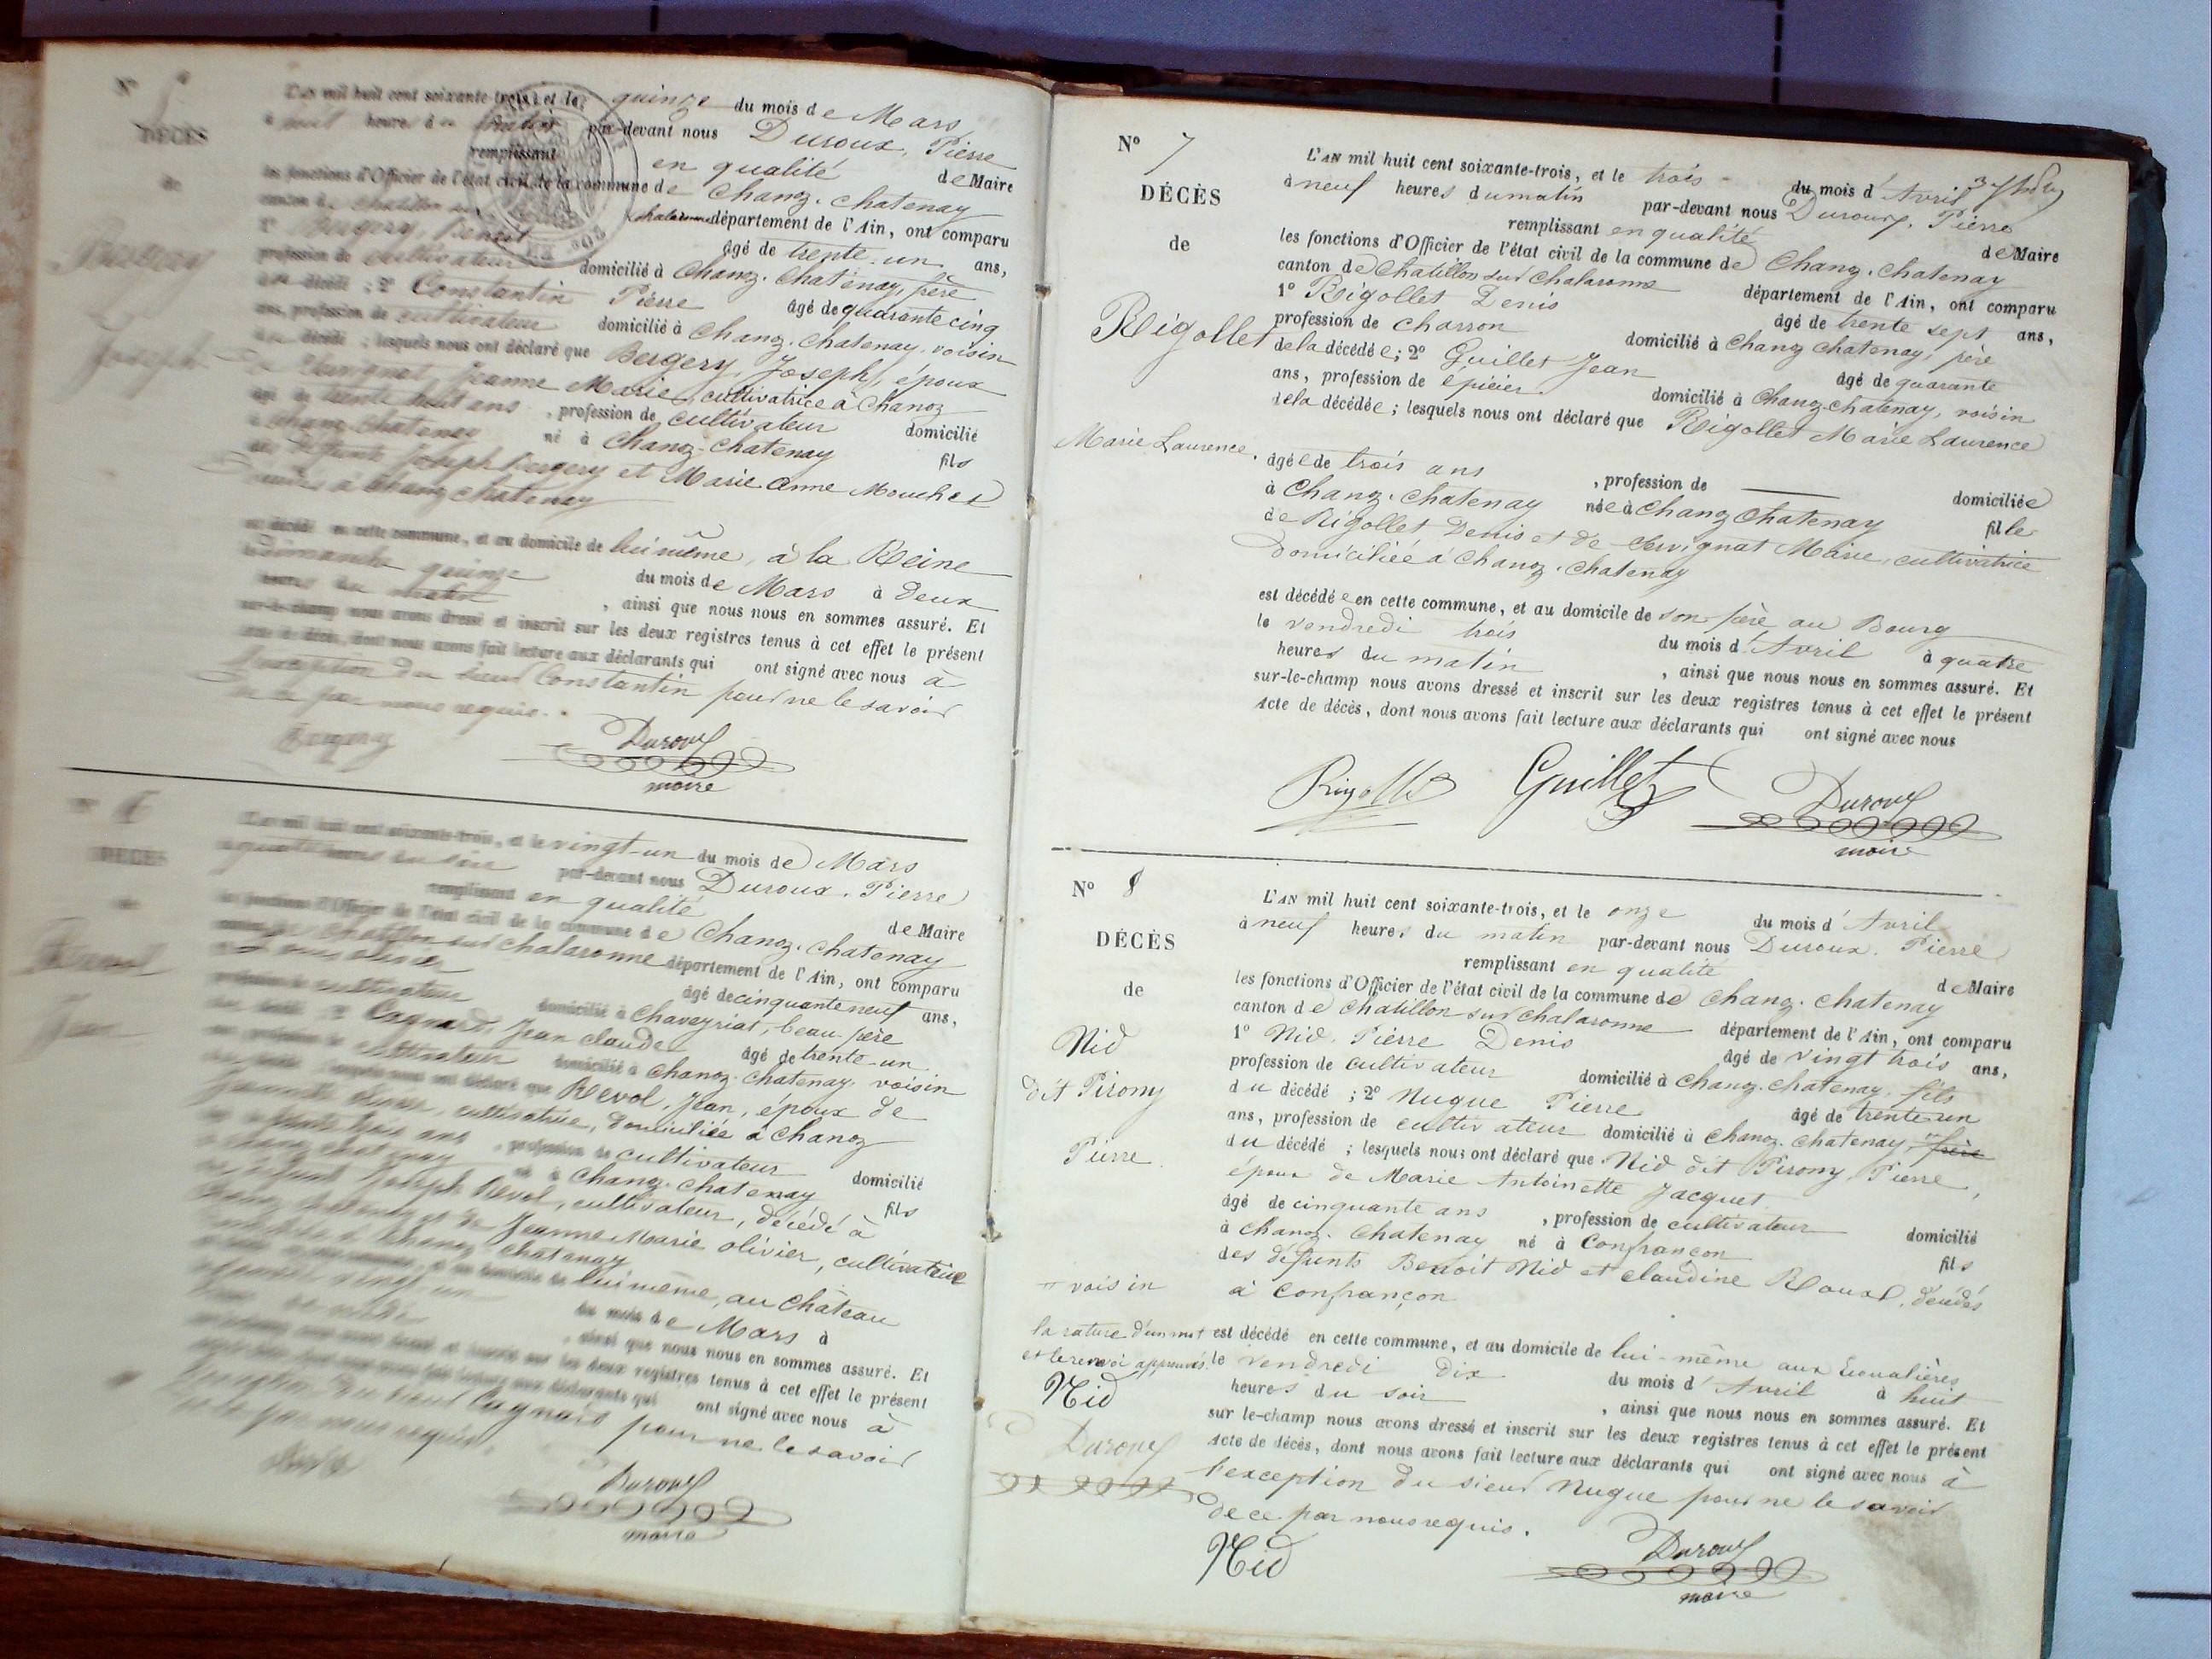 N°
DÉCÈS
de
Joseph
L'AN mil huit cent soixante-trois, et le quinze du mois de Mars
heures du par-devant nous Duroux, Pierre
remplissant en qualité de Maire
les fonctions d'Officier de l'état civil de la commune de Chanoz-Chatenay
canton de Chatillon sur Chalaronne département de l'Ain, ont comparu
1° Bergery, Benoit âgé de trente-un ans,
profession de cultivateur domicilié à Chanoz-Chatenay, père
du décédé ; 2° Constantin Pierre âgé de quarante cinq
ans, profession de cultivateur domicilié à Chanoz-Chatenay, voisin
du décédé ; lesquels nous ont déclaré que Bergery, Joseph, époux
Jeanne Marie, cultivatrice à Chanoz
âgé de trente huit ans , profession de cultivateur domicilié
à Chanoz Chatenay né à Chanoz-Chatenay fils
Joseph Bergery et Marie Anne Mouches
à Chanoz Chatenay
est décédé en cette commune, et au domicile de lui même, à la Reine
le dimanche quinze du mois de Mars à deux
heures du matin , ainsi que nous nous en sommes assuré. Et
sur-le-champ nous avons dressé et inscrit sur les deux registres tenus à cet effet le présent
acte de décès, dont nous avons fait lecture aux déclarants qui ont signé avec nous à
l'exception du sieur Constantin pour ne le savoir
de ce par nous requis.
Bergery Duroux
maire
N° 6
DÉCÈS
de
Revol
Jean
L'AN mil huit cent soixante-trois, et le vingt-un du mois de Mars
à quatre heures du soir par-devant nous Duroux, Pierre
remplissant en qualité de Maire
les fonctions d'Officier de l'état civil de la commune de Chanoz-Chatenay
canton de Chatillon sur Chalaronne département de l'Ain, ont comparu
olivier âgé de cinquante neuf ans,
profession de cultivateur domicilié à Chaveyriat, beau-père
du décédé ; 2° Cagnard, Jean claude âgé de trente-un
ans, profession de cultivateur domicilié à Chanoz-Chatenay, voisin
du décédé ; lesquels nous ont déclaré que Revol, Jean, époux de
olivier, cultivatrice, domiciliée à Chanoz
trois ans , profession de cultivateur domicilié
à Chanoz Chatenay né à Chanoz-Chatenay fils
de défunt Joseph Revol, cultivateur, décédé à
Chanoz Chatenay et de Jeanne Marie olivier, cultivatrice
à Chanoz-Chatenay
est décédé en cette commune, et au domicile de lui même, au Château
vingt un du mois de Mars à
, ainsi que nous nous en sommes assuré. Et
sur-le-champ nous avons dressé et inscrit sur les deux registres tenus à cet effet le présent
acte de décès, dont nous avons fait lecture aux déclarants qui ont signé avec nous à
l'exception du sieur Cagnard pour ne le savoir
de ce par nous requis.
Duroux
maire
N° 7
DÉCÈS
de
Rigollet
Marie Laurence.
L'AN mil huit cent soixante-trois, et le trois du mois d'Avril
à neuf heures du matin par-devant nous Duroux, Pierre
remplissant en qualité de Maire
les fonctions d'Officier de l'état civil de la commune de Chanoz-Chatenay
canton de Chatillon sur Chalaronne département de l'Ain, ont comparu
1° Rigollet Denis âgé de trente sept ans,
profession de charron domicilié à Chanoz Chatenay, père
de la décédée ; 2° Guillet Jean âgé de quarante
ans, profession de épicier domicilié à Chanoz Chatenay, voisin
de la décédée ; lesquels nous ont déclaré que Rigollet Marie Laurence
âgée de trois ans , profession de ——— domiciliée
à Chanoz-Chatenay née à Chanoz Chatenay fille
de Rigollet Denis et de Servignat Marie, cultivatrice
domiciliée à Chanoz-Chatenay
est décédée en cette commune, et au domicile de son père au Bourg
le vendredi trois du mois d'Avril à quatre
heures du matin , ainsi que nous nous en sommes assuré. Et
sur-le-champ nous avons dressé et inscrit sur les deux registres tenus à cet effet le présent
Acte de décès, dont nous avons fait lecture aux déclarants qui ont signé avec nous
Rigollet Guillet Duroux
maire
N° 8
DÉCÈS
de
Nid
dit Pirony
Pierre.
L'AN mil huit cent soixante-trois, et le onze du mois d'Avril
à neuf heures du matin par-devant nous Duroux, Pierre
remplissant en qualité de Maire
les fonctions d'Officier de l'état civil de la commune de Chanoz-Chatenay
canton de Chatillon sur Chalaronne département de l'Ain, ont comparu
1° Nid, Pierre Denis âgé de vingt trois ans,
profession de cultivateur domicilié à Chanoz-Chatenay, fils
du décédé ; 2° Nugue Pierre âgé de trente-un
ans, profession de cultivateur domicilié à Chanoz-Chatenay, frère
du décédé ; lesquels nous ont déclaré que Nid dit Pirony, Pierre,
époux de Marie Antoinette Jacquet
âgé de cinquante ans , profession de cultivateur domicilié
à Chanoz-Chatenay né à Confrançon fils
des défunts Benoit Nid et Claudine Roux, décédés
à Confrançon
voisin
la rature d'un mot
et le renvoi approuvés.
Nid
Duroux
est décédé en cette commune, et au domicile de lui-même aux
le vendredi dix du mois d'Avril à huit
heures du soir , ainsi que nous nous en sommes assuré. Et
sur le-champ nous avons dressé et inscrit sur les deux registres tenus à cet effet le présent
Acte de décès, dont nous avons fait lecture aux déclarants qui ont signé avec nous à
l'exception du sieur Nugue pour ne le savoir
de ce par nous requis.
Nid Duroux
maire